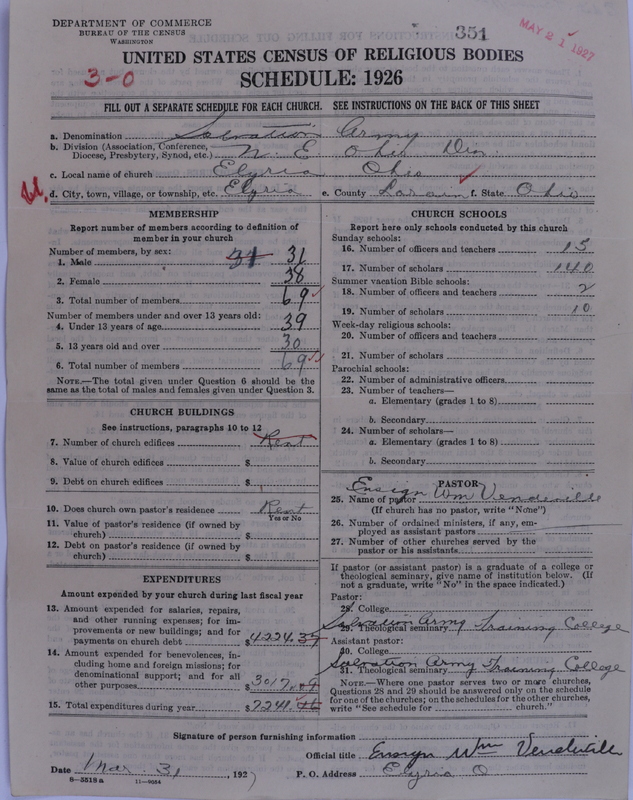 DEPARTMENT OF COMMERCE
BUREAU OF THE CENSUS
WASHINGTON
351
MAY 21 1927
UNITED STATES CENSUS OF RELIGIOUS BODIES
3-0
SCHEDULE: 1926
FILL OUT A SEPARATE SCHEDULE FOR EACH CHURCH. SEE INSTRUCTIONS ON THE BACK OF THIS SHEET
a. Denomination Salvation Army
b. Division (Association, Conference, Diocese, Presbytery, Synod, etc.) N. E. Ohio Div.
c. Local name of church Elyria Ohio
d. City, town, village, or township, etc. Elyria e. County Lorain f. State Ohio
MEMBERSHIP
Report number of members according to definition of
member in your church
Number of members, by sex:
1. Male 31 31
2. Female 38
3. Total number of members 69
Number of members under and over 13 years old:
4. Under 13 years of age 39
5. 13 years old and over 30
6. Total number of members 69
NOTE.—The total given under Question 6 should be the
same as the total of males and females given under Question 3.
CHURCH BUILDINGS
See instructions, paragraphs 10 to 12
7. Number of church edifices Rent
8. Value of church edifices $
9. Debt on church edifices $
10. Does church own pastor's residence Rent
Yes or No
11. Value of pastor's residence (if owned by
church) $
12. Debt on pastor's residence (if owned by
church) $
EXPENDITURES
Amount expended by your church during last fiscal year
13. Amount expended for salaries, repairs,
and other running expenses; for im-
provements or new buildings; and for
payments on church debt $4224.37
14. Amount expended for benevolences, in-
cluding home and foreign missions; for
denominational support; and for all
other purposes $3017.
15. Total expenditures during year $7241.
CHURCH SCHOOLS
Report here only schools conducted by this church
Sunday schools:
16. Number of officers and teachers 15
17. Number of scholars 140
Summer vacation Bible schools:
18. Number of officers and teachers 2
19. Number of scholars 10
Week-day religious schools:
20. Number of officers and teachers
21. Number of scholars
Parochial schools:
22. Number of administrative officers
23. Number of teachers—
a. Elementary (grades 1 to 8)
b. Secondary
24. Number of scholars—
a. Elementary (grades 1 to 8)
b. Secondary
PASTOR
25. Name of pastor Ensign Wm Vendeville
(If church has no pastor, write "None")
26. Number of ordained ministers, if any, em-
ployed as assistant pastors
27. Number of other churches served by the
pastor or his assistants
If pastor (or assistant pastor) is a graduate of a college or
theological seminary, give name of institution below. (If
not a graduate, write "No" in the space indicated.)
Pastor:
28. College
29. Theological seminary Salvation Army Training College
Assistant pastor:
30. College
31. Theological seminary Salvation Army Training College
NOTE.—Where one pastor serves two or more churches,
Questions 28 and 29 should be answered only on the schedule
for one of the churches; on the schedules for the other churches,
write "See schedule for church."
Signature of person furnishing information
Official title Ensign Wm Vendeville
Date Mar. 31, 1927 P. O. Address Elyria O
8-5518a 11-9054